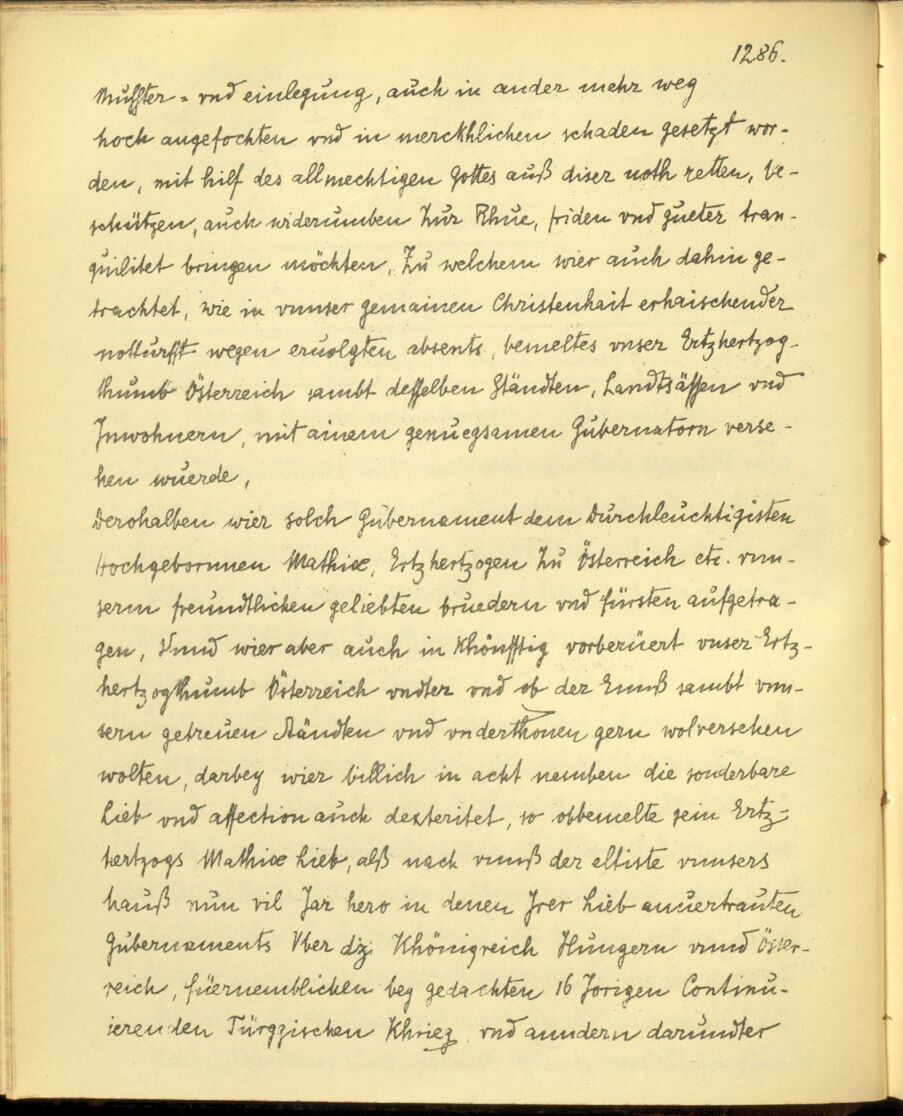 1286.
Muffter = vnd einlegung, auch in ander mehr weg
hoch angefochten vnd in merckhlichen schaden gesetzt wor-
den, mit hilf des allmechtigen Gottes auß diser noth retten, be-
schützen, auch widerumben Zur Rhue, friden vnd gueter tran-
quilitet bringen möchten, Zu welchem wier auch dahin ge-
trachtet, wie in vnnser gemainen Christenhait erhaischender
notturfft wegen eruolgten absents, bemeltes vnser Ertzhertzog-
thumb Österreich sambt desselben Ständten, Landtsässen vnd
Inwohnern, mit ainem genuegsamen Gubernatorn verse-
hen wuerde,
Derohalben wier solch Gubernament dem Durchleuchtigisten
Hochgebornnen Mathiæ, Ertzhertzogen Zu Österreich etc. vnn-
serm freundtlichen geliebten bruedern vnd fürsten aufgetra-
gen, Vnnd wier aber auch in Khönfftig vorberüert vnser Ertz-
hertzogthumb Österreich vndter vnd ob der Ennß sambt vnn-
sern getreuen Ständten vnd vnderthonen gern wolversehen
wolten, darbey wier billich in acht nemben die sonderbare
Lieb vnd affection auch dexteritet, so obbemelte sein Ertz-
hertzogs Mathiæ Lieb, alß nach vnnß der eltiste vnnsers
hauß nun vil Jar hero in denen Irer Lieb anuertrauten
Gubernaments Vber diz Khönigreich Hungern vnnd Öster-
reich, füernemblichen bey gedachten 16 Jorigen Continu-
ierenden Türggischen Khrieg vnd anndern darundter